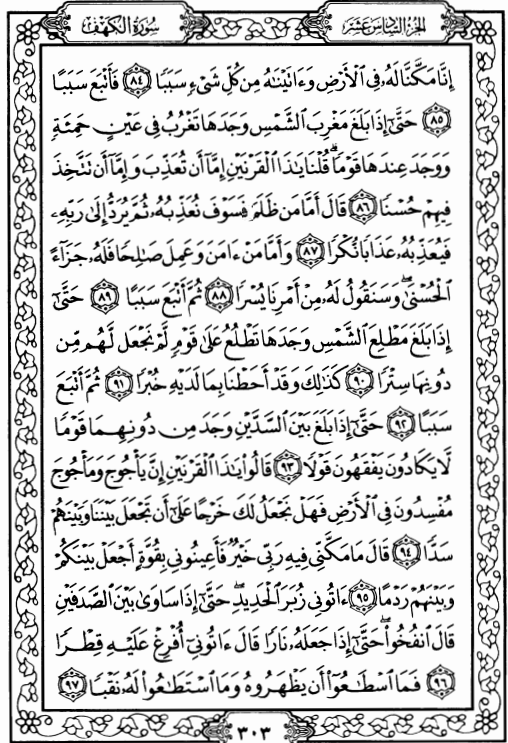 الجزء السادس عشر
سورة الكهف
إِنَّا مَكَّنَّا لَهُۥ فِي ٱلۡأَرۡضِ وَءَاتَيۡنَٰهُ مِن كُلِّ شَيۡءٖ سَبَبٗا ٨٤ فَأَتۡبَعَ سَبَبًا
٨٥ حَتَّىٰٓ إِذَا بَلَغَ مَغۡرِبَ ٱلشَّمۡسِ وَجَدَهَا تَغۡرُبُ فِي عَيۡنٍ حَمِئَةٖ
وَوَجَدَ عِندَهَا قَوۡمٗاۖ قُلۡنَا يَٰذَا ٱلۡقَرۡنَيۡنِ إِمَّآ أَن تُعَذِّبَ وَإِمَّآ أَن تَتَّخِذَ
فِيهِمۡ حُسۡنٗا ٨٦ قَالَ أَمَّا مَن ظَلَمَ فَسَوۡفَ نُعَذِّبُهُۥ ثُمَّ يُرَدُّ إِلَىٰ رَبِّهِۦ
فَيُعَذِّبُهُۥ عَذَابٗا نُّكۡرٗا ٨٧ وَأَمَّا مَنۡ ءَامَنَ وَعَمِلَ صَٰلِحٗا فَلَهُۥ جَزَآءً
ٱلۡحُسۡنَىٰۖ وَسَنَقُولُ لَهُۥ مِنۡ أَمۡرِنَا يُسۡرٗا ٨٨ ثُمَّ أَتۡبَعَ سَبَبًا ٨٩ حَتَّىٰٓ
إِذَا بَلَغَ مَطۡلِعَ ٱلشَّمۡسِ وَجَدَهَا تَطۡلُعُ عَلَىٰ قَوۡمٖ لَّمۡ نَجۡعَل لَّهُم مِّن
دُونِهَا سِتۡرٗا ٩٠ كَذَٰلِكَ وَقَدۡ أَحَطۡنَا بِمَا لَدَيۡهِ خُبۡرٗا ٩١ ثُمَّ أَتۡبَعَ
سَبَبًا ٩٢ حَتَّىٰٓ إِذَا بَلَغَ بَيۡنَ ٱلسَّدَّيۡنِ وَجَدَ مِن دُونِهِمَا قَوۡمٗا
لَّا يَكَادُونَ يَفۡقَهُونَ قَوۡلٗا ٩٣ قَالُواْ يَٰذَا ٱلۡقَرۡنَيۡنِ إِنَّ يَأۡجُوجَ وَمَأۡجُوجَ
مُفۡسِدُونَ فِي ٱلۡأَرۡضِ فَهَلۡ نَجۡعَلُ لَكَ خَرۡجًا عَلَىٰٓ أَن تَجۡعَلَ بَيۡنَنَا وَبَيۡنَهُمۡ
سَدّٗا ٩٤ قَالَ مَا مَكَّنِّي فِيهِ رَبِّي خَيۡرٞ فَأَعِينُونِي بِقُوَّةٍ أَجۡعَلۡ بَيۡنَكُمۡ
وَبَيۡنَهُمۡ رَدۡمًا ٩٥ ءَاتُونِي زُبَرَ ٱلۡحَدِيدِۖ حَتَّىٰٓ إِذَا سَاوَىٰ بَيۡنَ ٱلصَّدَفَيۡنِ
قَالَ ٱنفُخُواْۖ حَتَّىٰٓ إِذَا جَعَلَهُۥ نَارٗا قَالَ ءَاتُونِيٓ أُفۡرِغۡ عَلَيۡهِ قِطۡرٗا
٩٦ فَمَا ٱسۡطَٰعُوٓاْ أَن يَظۡهَرُوهُ وَمَا ٱسۡتَطَٰعُواْ لَهُۥ نَقۡبٗا ٩٧
٣٠٣